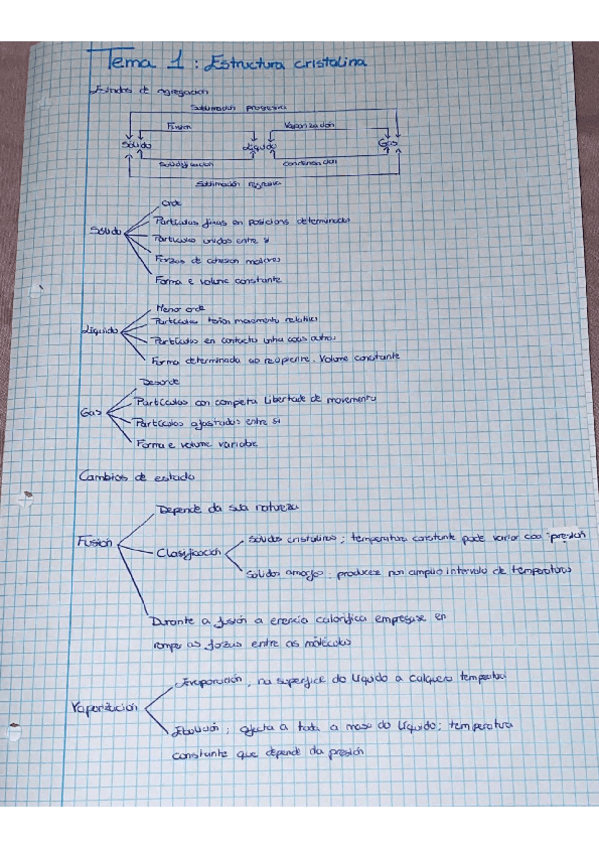 Tema 1 : Estructura cristalina
Estados de agregación
Sublimación progresiva
Fusión Vaporización
Sólido Líquido Gas
Solidificación Condensación
Sublimación regresiva
Orde
Partículas fixas en posicións determinadas
Sólido Partículas unidas entre si
Forzas de cohesión maiores
Forma e volume constante
Menor orde
Partículas teñen movemento relativo
Líquido Partículas en contacto unha coas outras
Forma determinada ao recipiente. Volume constante
Desorde
Partículas con completa libertade de movemento
Gas Partículas afastadas entre si
Forma e volume variable
Cambios de estado
Depende da súa natureza
Fusión Clasificación Sólidos cristalinos; temperatura constante pode variar coa presión
Sólidos amorfos; producese nun amplio intervalo de temperatura
Durante a fusión a enerxía calorífica empregase en
romper as forzas entre as moléculas
Evaporación, na superficie do líquido a calquera temperatura
Vaporización
Ebulición; afecta a toda a masa do líquido; temperatura
constante que depende da presión